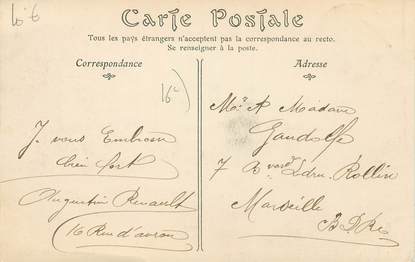 10.€
Carte Postale
Tous les pays étrangers n'acceptent pas la correspondance au recto.
Se renseigner à la poste.
Correspondance
Adresse
16c)
Je vous Embrasse
bien fort
Augustin Renault
16 Rue d'avron
Mr & Madame
Gandolfe
7 Bvard Ledru-Rollin
Marseille
B.D.R.